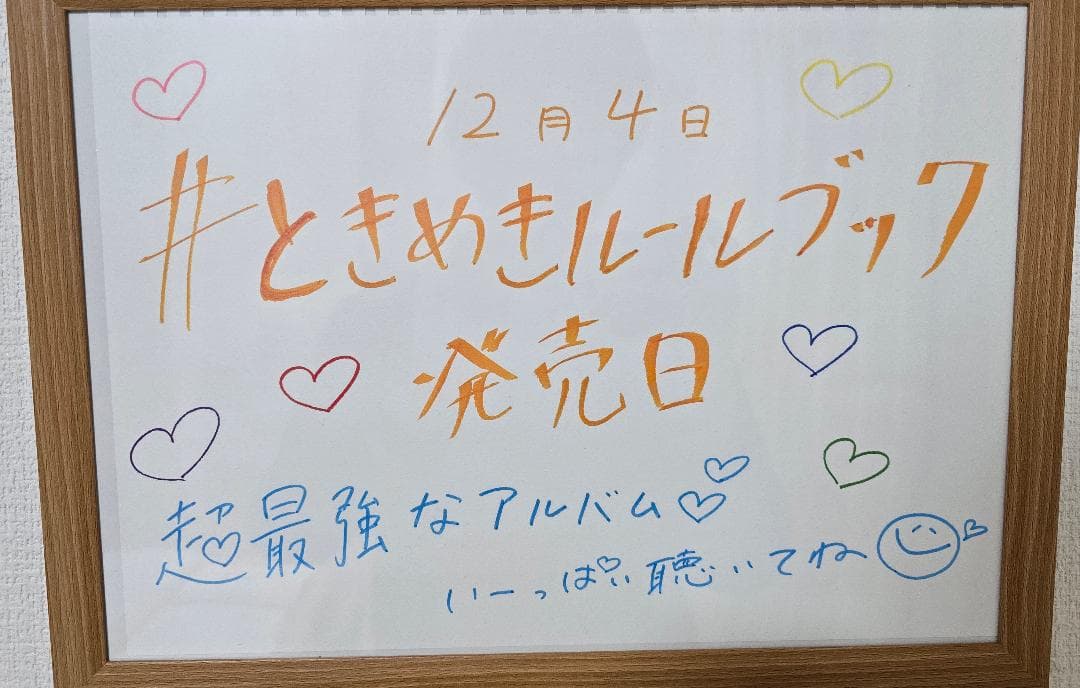 12月4日
#ときめきルールブック
発売日
超最強なアルバム♡♡
いーっぱい聴いてね